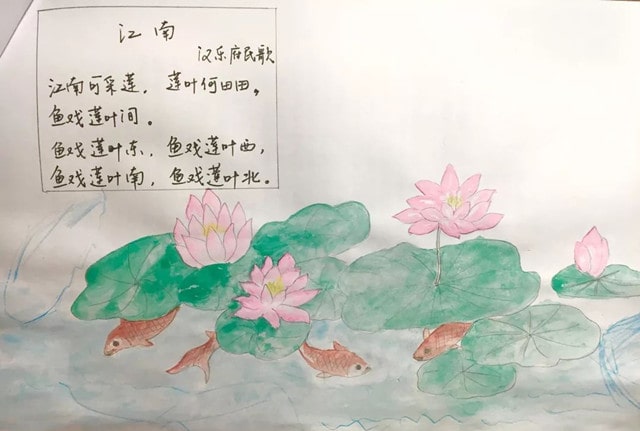 江南
汉乐府民歌
江南可采莲，莲叶何田田，
鱼戏莲叶间。
鱼戏莲叶东，鱼戏莲叶西，
鱼戏莲叶南，鱼戏莲叶北。